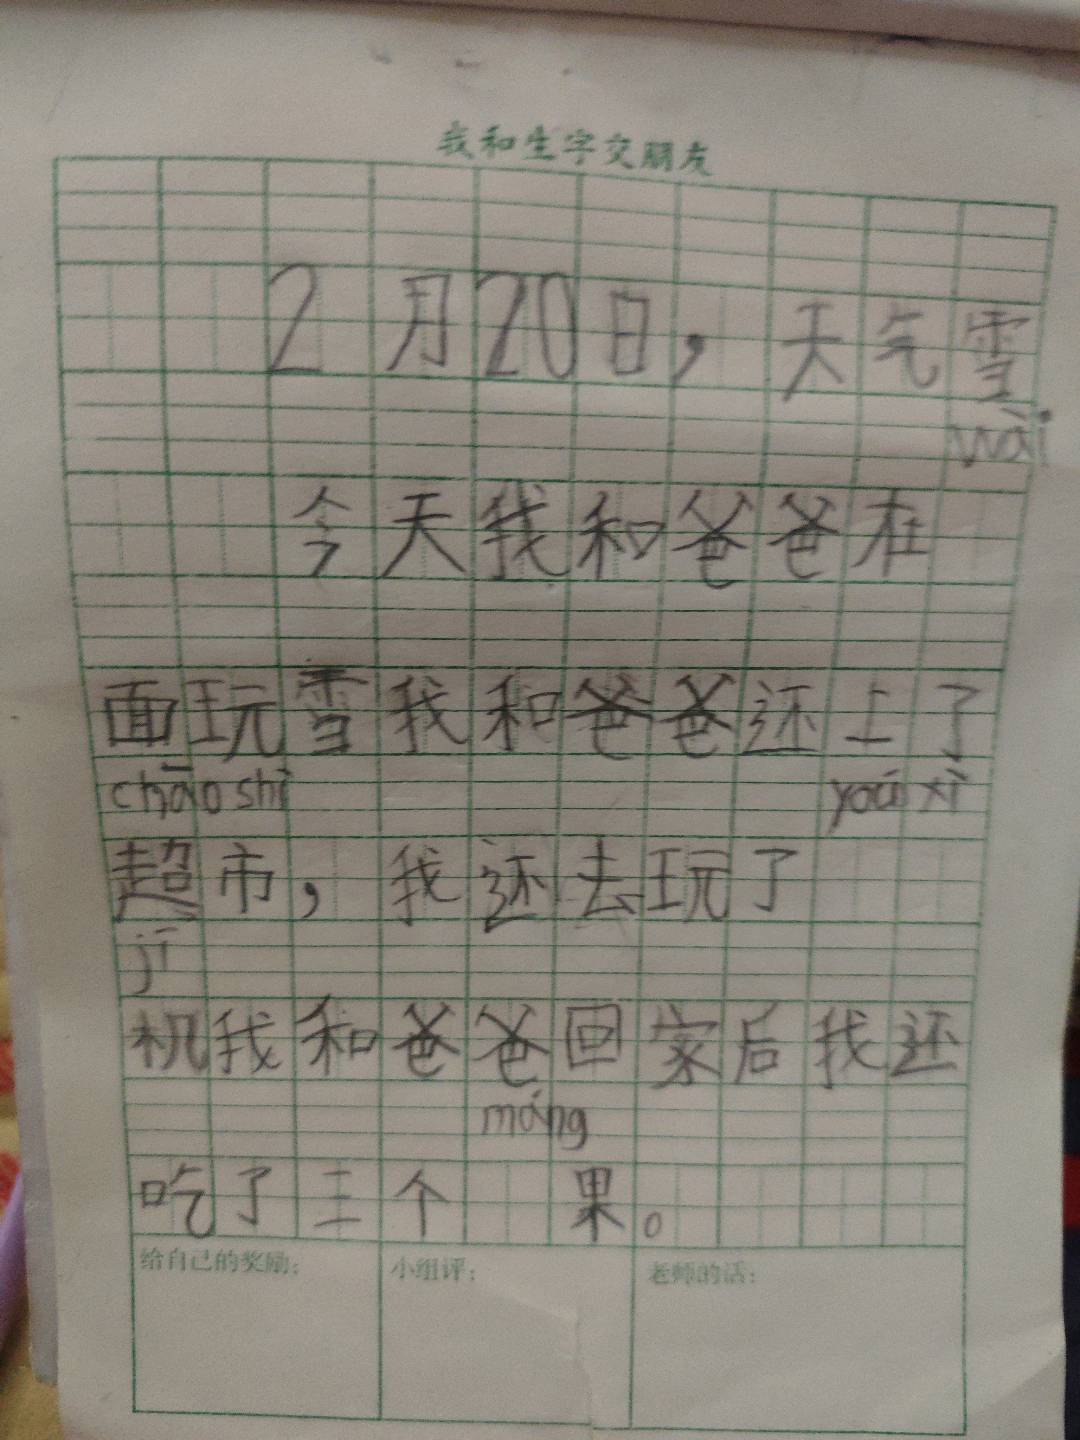 我和生字交朋友
2月20日，天气雪
wài
今天我和爸爸在
面玩雪我和爸爸还上了
chāo shì yóu xì
超市，我还去玩了
jī
机我和爸爸回家后我还
máng
吃了三个 果。
给自己的奖励： 小组评： 老师的话：